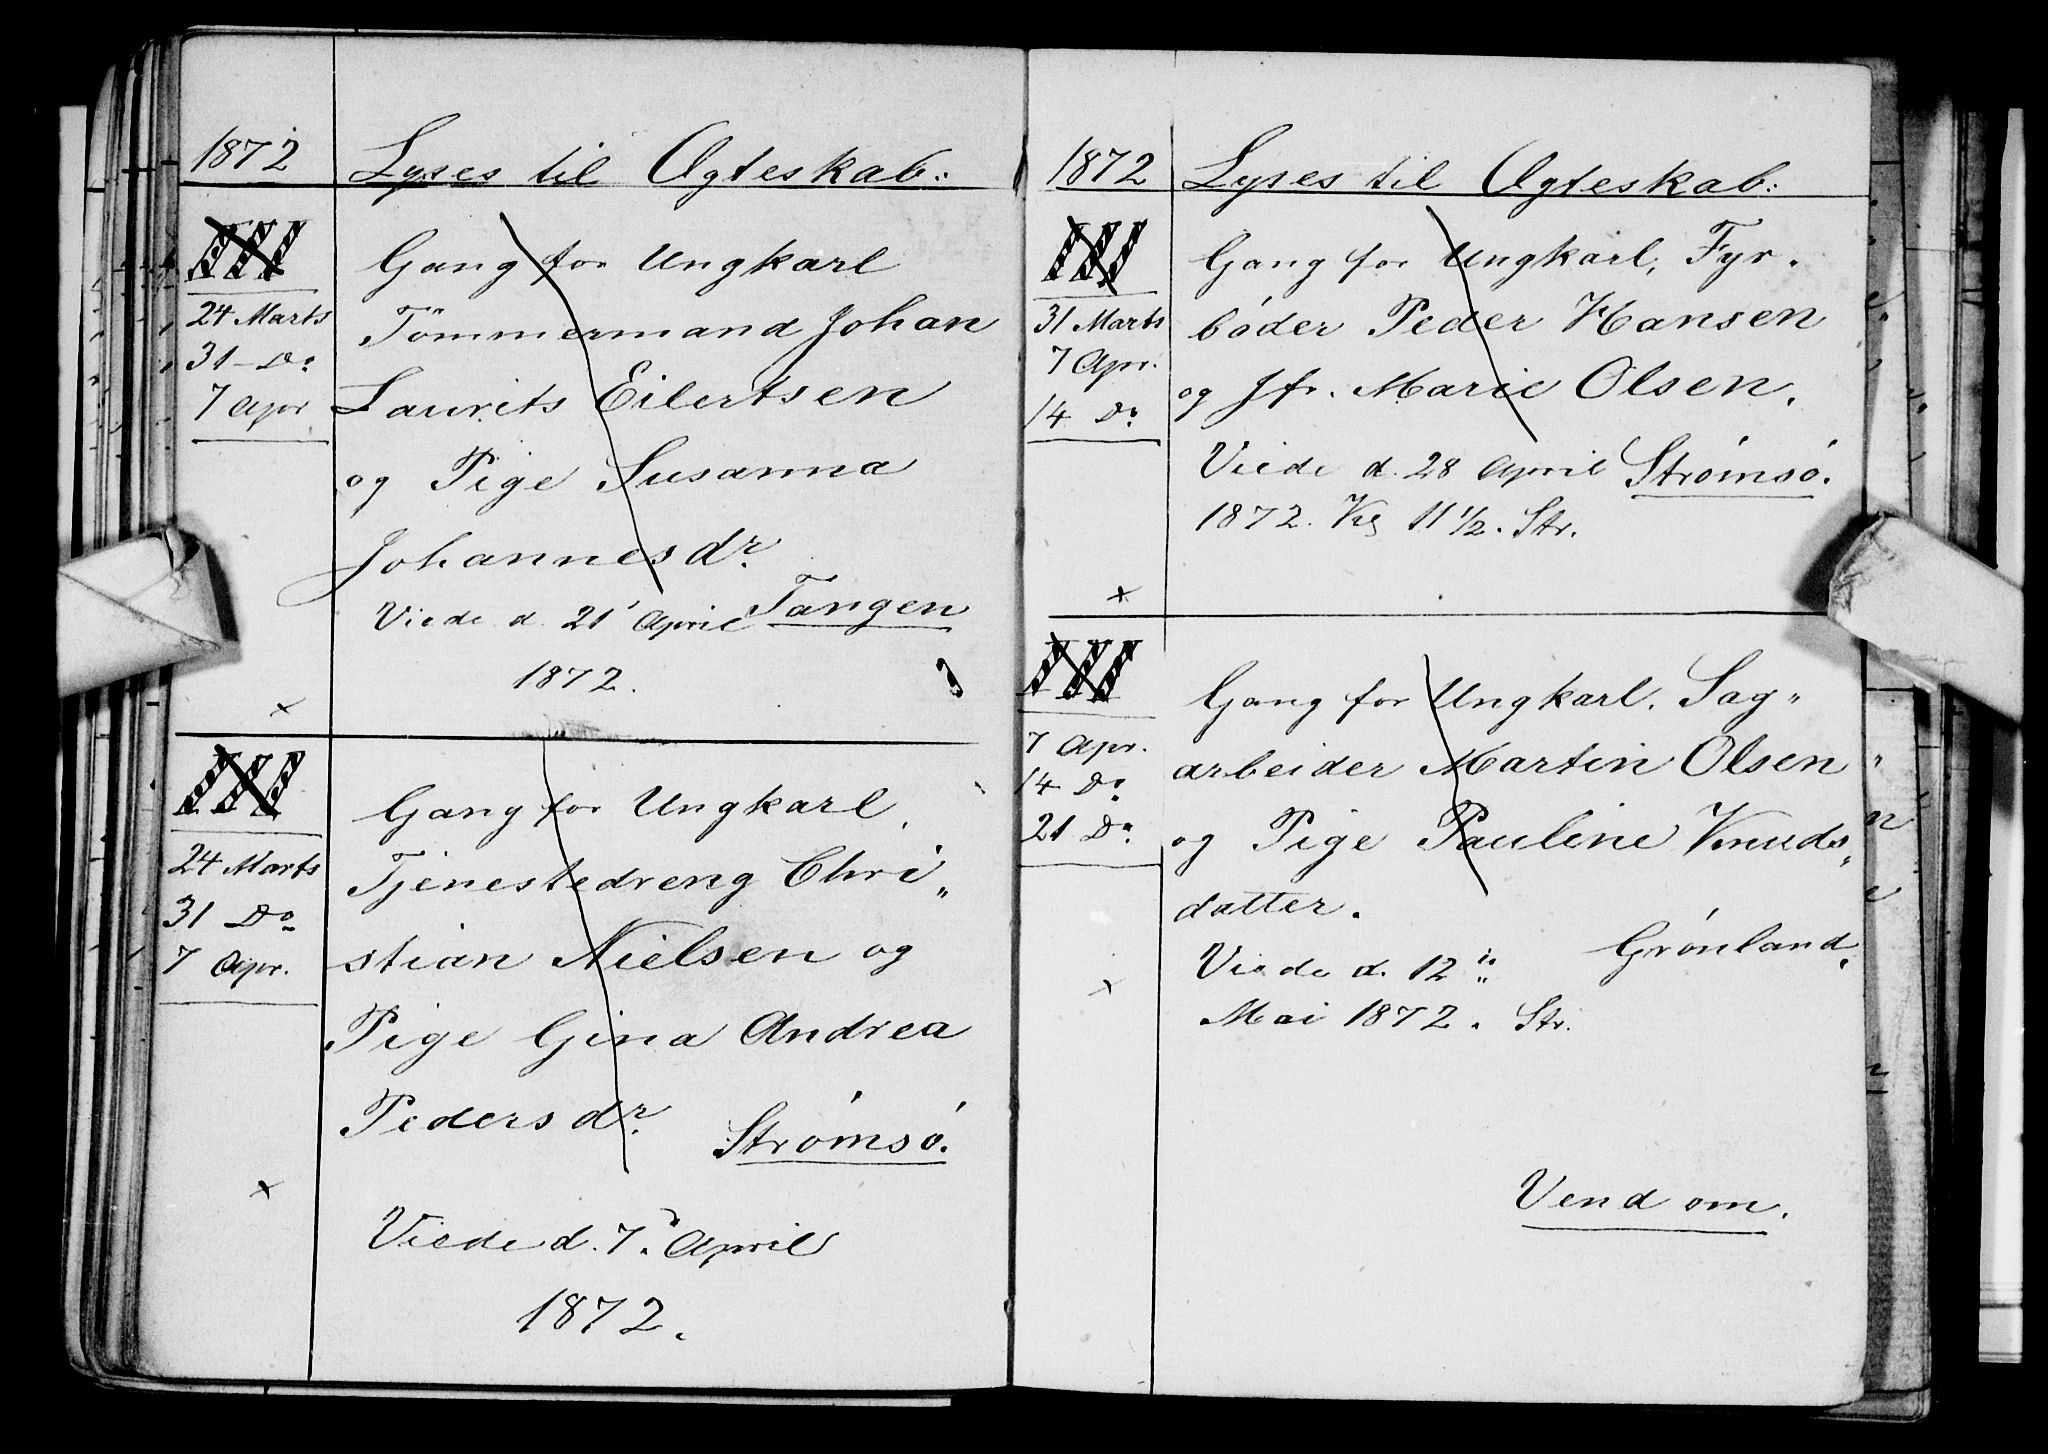 1872
Lyses til Ægteskab:
III
Gang for Ungkarl
24 Marts
Tömmermand Johan
31 – Do
7 Apr
Laurits Eilertsen
og Pige Susanna
Johannesdr.
Viede d. 21 April Tangen
1872.
x
III
Gang for Ungkarl,
24 Marts
Tjenestedreng Chri„
31 Do
7 Apr.
stian Nielsen og
Pige Gina Andrea
Pedersdr.
Strømsó.
x
Viede d. 7. April
1872.
1872
Lyses til Ægteskab:
III
Gang for Ungkarl, Fyr.
31 Marts
bóder Peder Hansen
7 Apr.
14 Do
og Jfr. Marie Olsen.
Viede d. 28 April Strømsó.
1872. Kl 11 1/2. Str.
x
III
Gang for Ungkarl. Sag„
7 Apr.
arbeider Martin Olsen
14 Do
21 Do
og Pige Pauline Knuds„
datter.
Grónland.
Viede d. 12
Mai 1872. Str.
x
Vend om.